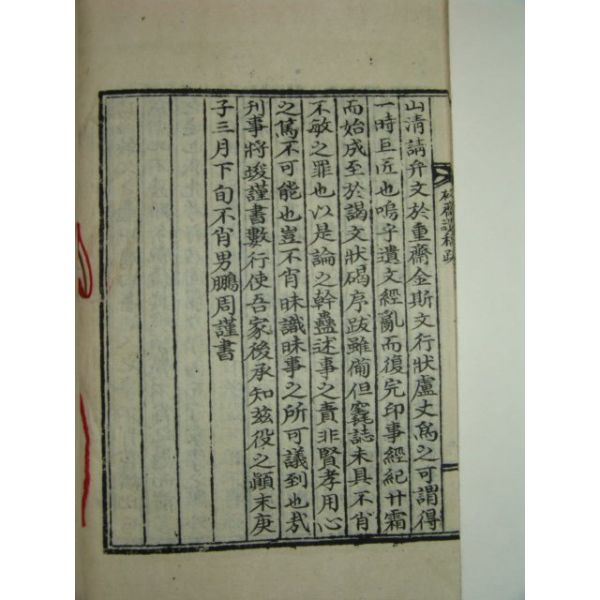 山清請弁文於重齋金斯文行狀盧丈爲之可謂得
一時巨匠也嗚乎遺文經亂而復完印事經紀廿霜
而始成至於謁文狀碣序跋雖備但竁誌未具不肖
不敏之罪也以是論之幹蠱述事之責非賢孝用心
之篤不可能也豈不肖昧識昧事之所可議到也哉
刊事將竣謹書數行使吾家後承知玆役之顚末庚
子三月下旬不肖男鵬周謹書